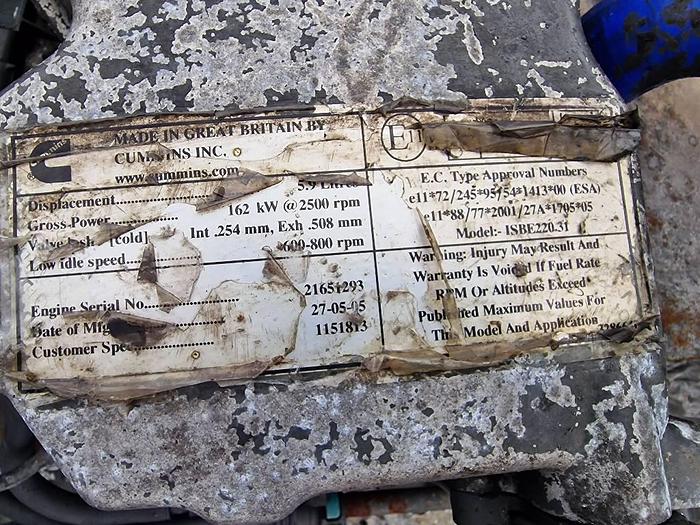 cummins
MADE IN GREAT BRITAIN BY
CUMMINS INC.
www.cummins.com
Displacement.......... 5.9 Litres
Gross Power.......... 162 kW @ 2500 rpm
Valve Lash [cold] Int .254 mm, Exh .508 mm
Low idle speed.......... 600-800 rpm
Engine Serial No.......... 21651293
Date of Mfg.......... 27-05-05
Customer Spec.......... 1151813
E11
E.C. Type Approval Numbers
e11*72/245*95/54*1413*00 (ESA)
e11*88/77*2001/27A*1705*05
Model:- ISBE220.31
Warning: Injury May Result And
Warranty Is Voided If Fuel Rate
RPM Or Altitudes Exceed
Published Maximum Values For
This Model And Application